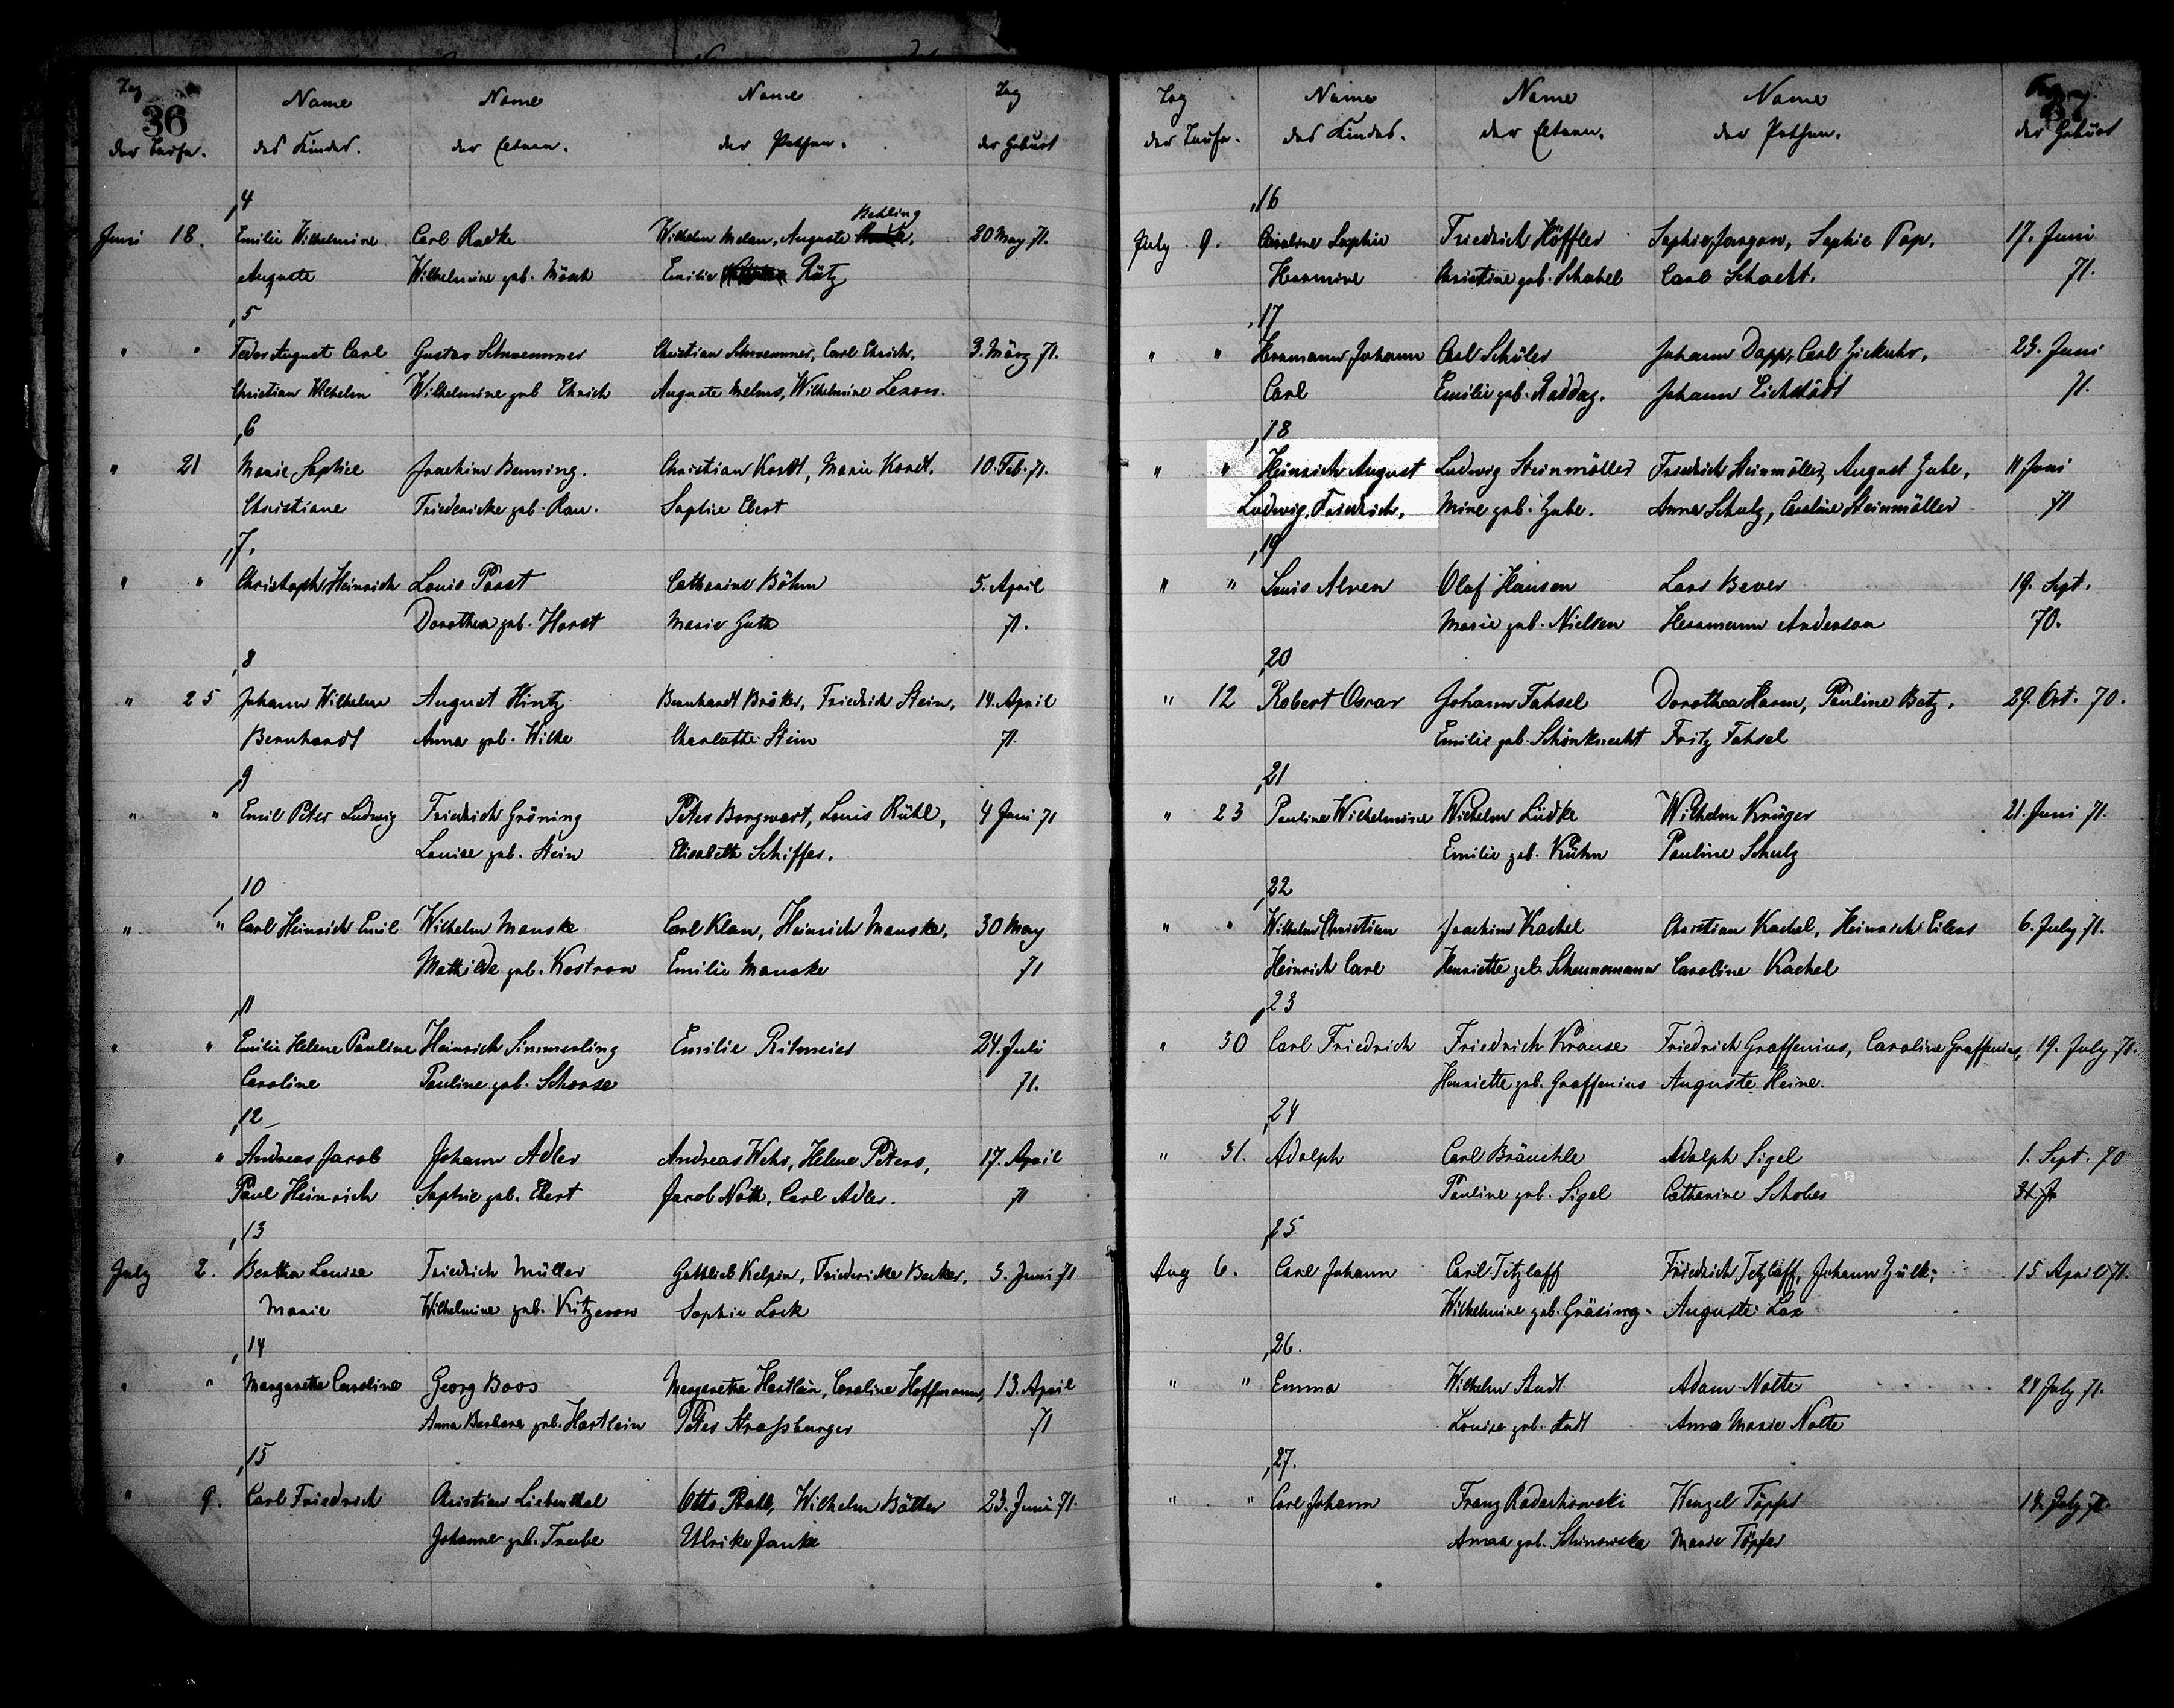 36
Tag Name Name Name Tag
der Taufe. des Kindes. der Eltern. der Pathen. der Geburt
4
Juni 18. Emilie Wilhelmine Carl Radke Wilhelm Melan, Auguste Behling 20 May 71.
Auguste Wilhelmine geb. Mösch Emilie Rütz
5
" " August Carl Gustav Schwemmer Christian Schwemmer, Carl Ehrich, 3. März 71.
Christian Wilhelm Wilhelmine geb Ehrich Auguste Melms, Wilhelmine
6
" 21 Marie Sophie Joachim Benning. Christian Kordt, Marie Kordt. 10. Feb. 71.
Christiane Friedericke geb. Rau. Sophie Ebert
7.
" " Christoph Heinrich Louis Passt Catharine Böhm 5. April
Dorothea geb. Horst Marie Guth 71.
8
" 25 Johann Wilhelm August Hintz Bernhardt Bröker, Friedrich Stein, 14. April
Bernhardt Anna geb. Wilke Charlotte Stein 71.
9
" " Emil Peter Ludwig Friedrich Gröning Peter Borgwart, Louis Rühl, 4 Juni 71
Louise geb. Stein Elisabeth Schiffer.
10
" " Carl Heinrich Emil Wilhelm Manske Carl Klan, Heinrich Manske, 30 May
Mathilde geb. Kostrow Emilie Manske 71
11
" " Emilie Helene Pauline Heinrich Simmerling Emilie Ritmeier 24. Juli
Caroline Pauline geb. Schorse 71.
12
" " Andreas Jacob Johann Adler Andreas Wehr, Helene Peters, 17. April
Paul Heinrich Sophie geb. Ebert Jacob Noth, Carl Adler. 71
13
July 2. Bertha Louise Friedrich Müller Gottlieb Kelpin, Friedericke Becker, 5. Juni 71
Marie Wilhelmine geb. Kitzerow Sophie Lock
14
" " Margarethe Caroline Georg Boos Margaretha Hartlein, Caroline Hoffmann, 13. April
Anna Barbara geb. Hartlein Peter Straßburger 71
15
" 9. Carl Friedrich Christian Liebenthal Otto Wilhelm Böttcher 23. Juni 71.
Johanne geb. Traube Ulrike Janke
Tag Name Name Name
der Taufe. des Kindes. der Eltern. der Pathen. der Geburt
16
July 9. Caroline Sophie Friedrich Höffler Sophie Jargow, Sophie Pop, 17. Juni
Hermine Christine geb. Schabel Carl Schacht. 71.
17
" " Hermann Johann Carl Schüler Johann Dapp, Carl 23. Juni
Carl Emilie geb. Raddaz. Johann Eichstädt 71.
18
" " Heinrich August Ludwig Steinmöller Friedrich Steinmöller, August Gabe, 11 Juni
Ludwig, Friedrich, Mine geb. Gabe. Anna Schulz, Caroline Steinmöller 71
19
" " Louis Alven Olaf Hansen Lars Bever 19. Sept.
Marie geb. Nielsen Herrmann Anderson 70.
20
" 12 Robert Oscar Johann Fahsel Dorothea Hamm, Pauline Batz. 29. Oct. 70.
Emilie geb. Schönknecht Fritz Fahsel
21
" 23 Pauline Wilhelmine Wilhelm Lüdke Wilhelm Krüger 21. Juni 71.
Emilie geb. Kühn Pauline Schulz
22
" " Wilhelm Christian Joachim Kachel Christian Kachel, Heinrich Eilers 6. July 71.
Heinrich Carl Henriette geb. Scheunemann Caroline Kachel
23
" 30 Carl Friedrich Friedrich Krause Friedrich Graffenius, Caroline Graffenius, 19. July 71.
Henriette geb. Graffenius Auguste Heine.
24
" 31. Adolph Carl Bräuchle Adolph Sigel 1. Sept. 70
Pauline geb. Sigel Catharine Schober
25
Aug 6. Carl Johann Carl Tetzlaff Friedrich Tetzlaff, Johann Zülk; 15 April 71.
Wilhelmine geb. Gräsing. Auguste Lax
26.
" " Emma Wilhelm Stadt Adam Nolte 24 July 71.
Louise geb. Stadt Anna Marie Nolte
27.
" " Carl Johann Franz Radachowski Wenzel Töpfer 14. July 71.
Anna geb. Schinowske Marie Töpfer